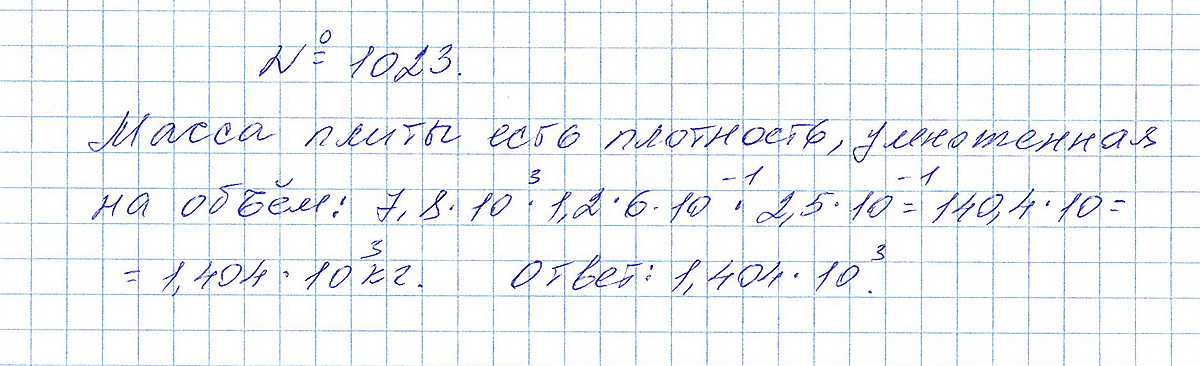 № 1023.
Масса плиты есть плотность, умноженная
на объём: 7,8·10³·1,2·6·10⁻¹·2,5·10⁻¹=140,4·10=
=1,404·10³кг. Ответ: 1,404·10³.